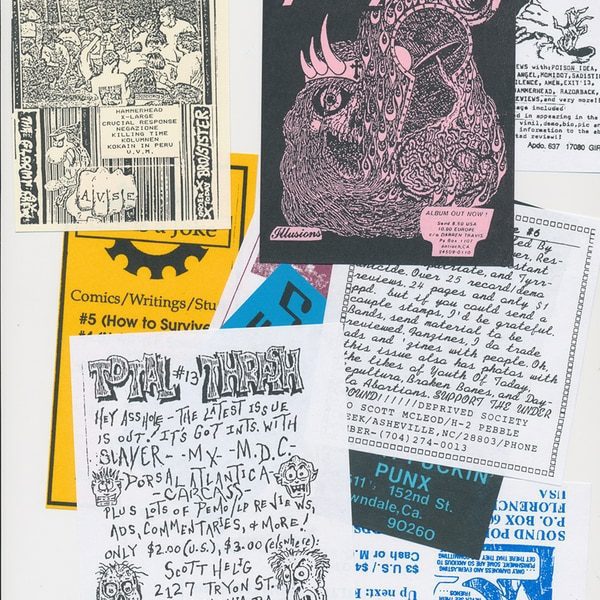 HAMMERHEAD
X-LARGE
CRUCIAL RESPONSE
NEGAZIONE
KILLING TIME
KOLUMNEN
KOKAIN IN PERU
U.V.M.
ALBUM OUT NOW!
Send 8.50 USA
10.00 EUROPE
c/o DARREN TRAVIS
Po Box 1107
Antioch, CA
94509-0110
Illusions
EWS with: POISON IDEA,
ANGEL, HOMIDOT, SADISTI
ILENCE, AMEN, EXIT'13,
AMMERHEAD, RAZORBACK,
EVIEWS, and vary more!!
age included
d in appearing in the
vinil, demo, bio, pic
information to the ab
tad review!!
Apdo. 637 17080 GIR
a JOKE
Comics/Writings/Stu
#5 (How to Survive
e #6
ted By
Over 25 record/demo
reviews, 24 pages and only $1
ppd. but if you could send a
couple stamps, I'd be grateful.
Bands, send material to be
reviewed. Fanzines, I do trade
ads and 'zines with people. Oh,
this issue also has photos with
the likes of Youth Of Today,
epultura, Broken Bones, and Day-
o Abortions. SUPPORT THE UNDER
ROUND!!!!!!DEPRIVED SOCIETY
O SCOTT MCLEOD/H-2 PEBBLE
EEK/ASHEVILLE,NC/28803/PHONE
MBER-(704) 274-0013
TOTAL #13 THRASH
HEY ASSHOLE - THE LATEST ISSUE
IS OUT! IT'S GOT INTS. WITH
SLAYER - MX - M.D.C. -
DORSAL ATLANTICA -
- CARCASS -
PLUS LOTS OF DEMO/LP REVIEWS,
ADS, COMMENTARIES, & MORE!
ONLY $2.00 (U.S.), $3.00 (elswhere):
SCOTT HELIG
2127 TRYON ST.
UCKIN'
PUNX
152nd St.
wndale, Ca.
90260
SOUND PO
FLORENC
P.O. BOX 6
USA
$3 U.S / $4
Cash or M
Up next: